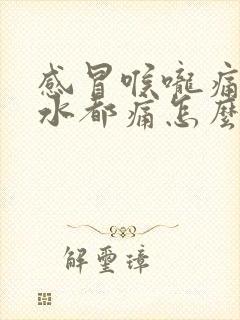 感冒喉嚨痛
水都痛怎麼
解璽璋